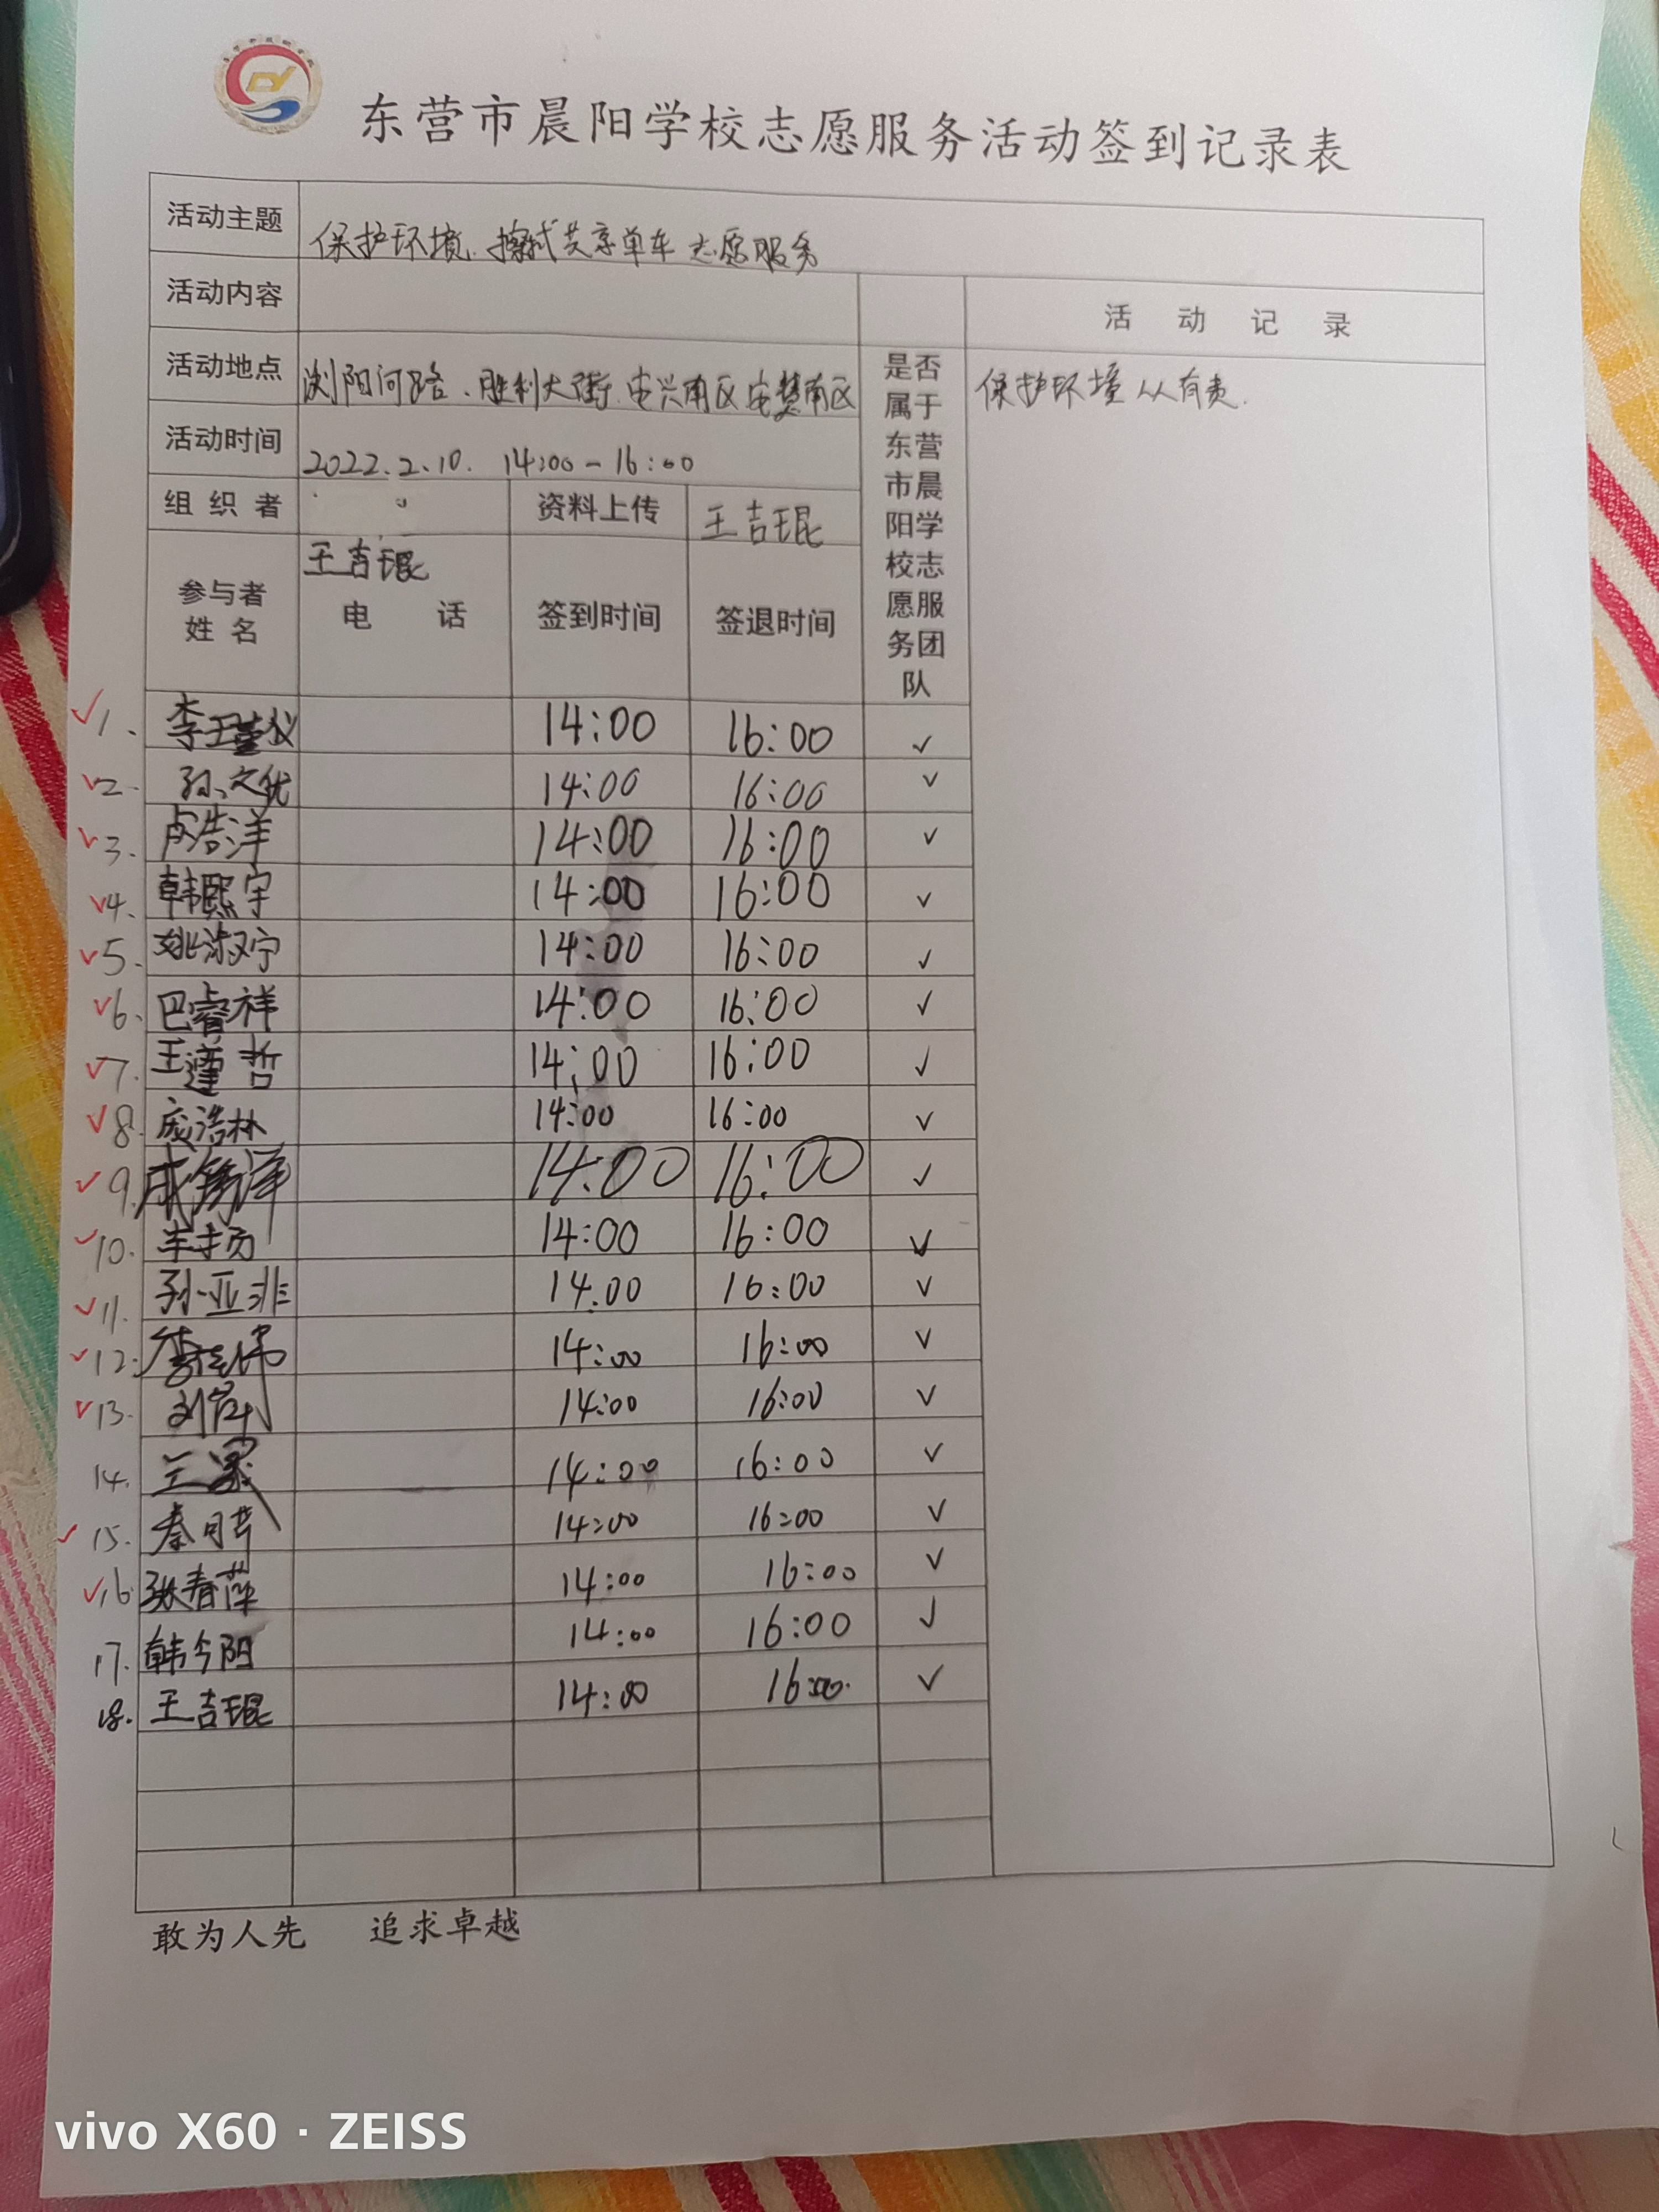 东营市晨阳学校志愿服务活动签到记录表
活动主题 保护环境、擦拭共享单车志愿服务
活动内容
活动记录
活动地点 浏阳河路、胜利大街、安兴南区安慧南区
是否属于东营市晨阳学校志愿服务团队
保护环境 人人有责.
活动时间 2022.2.10. 14:00-16:00
组织者 王吉琨 资料上传 王吉琨
参与者姓名 电话 签到时间 签退时间
✓1. 李王 仪 14:00 16:00 ✓
✓2. 孙文 14:00 16:00 ✓
✓3. 卢浩洋 14:00 16:00 ✓
✓4. 韩熙宇 14:00 16:00 ✓
✓5. 姚淑宁 14:00 16:00 ✓
✓6. 巴睿祥 14:00 16:00 ✓
✓7. 王谨哲 14:00 16:00 ✓
✓8. 庞浩朴 14:00 16:00 ✓
✓9. 成 洋 14:00 16:00 ✓
✓10. 扬 14:00 16:00 ✓
✓11. 孙亚非 14:00 16:00 ✓
✓12. 14:00 16:00 ✓
✓13. 刘 14:00 16:00 ✓
14. 14:00 16:00 ✓
✓15. 秦 14:00 16:00 ✓
✓16. 张春萍 14:00 16:00 ✓
17. 韩今阳 14:00 16:00 ✓
18. 王吉琨 14:00 16:00. ✓
敢为人先 追求卓越
vivo X60 · ZEISS